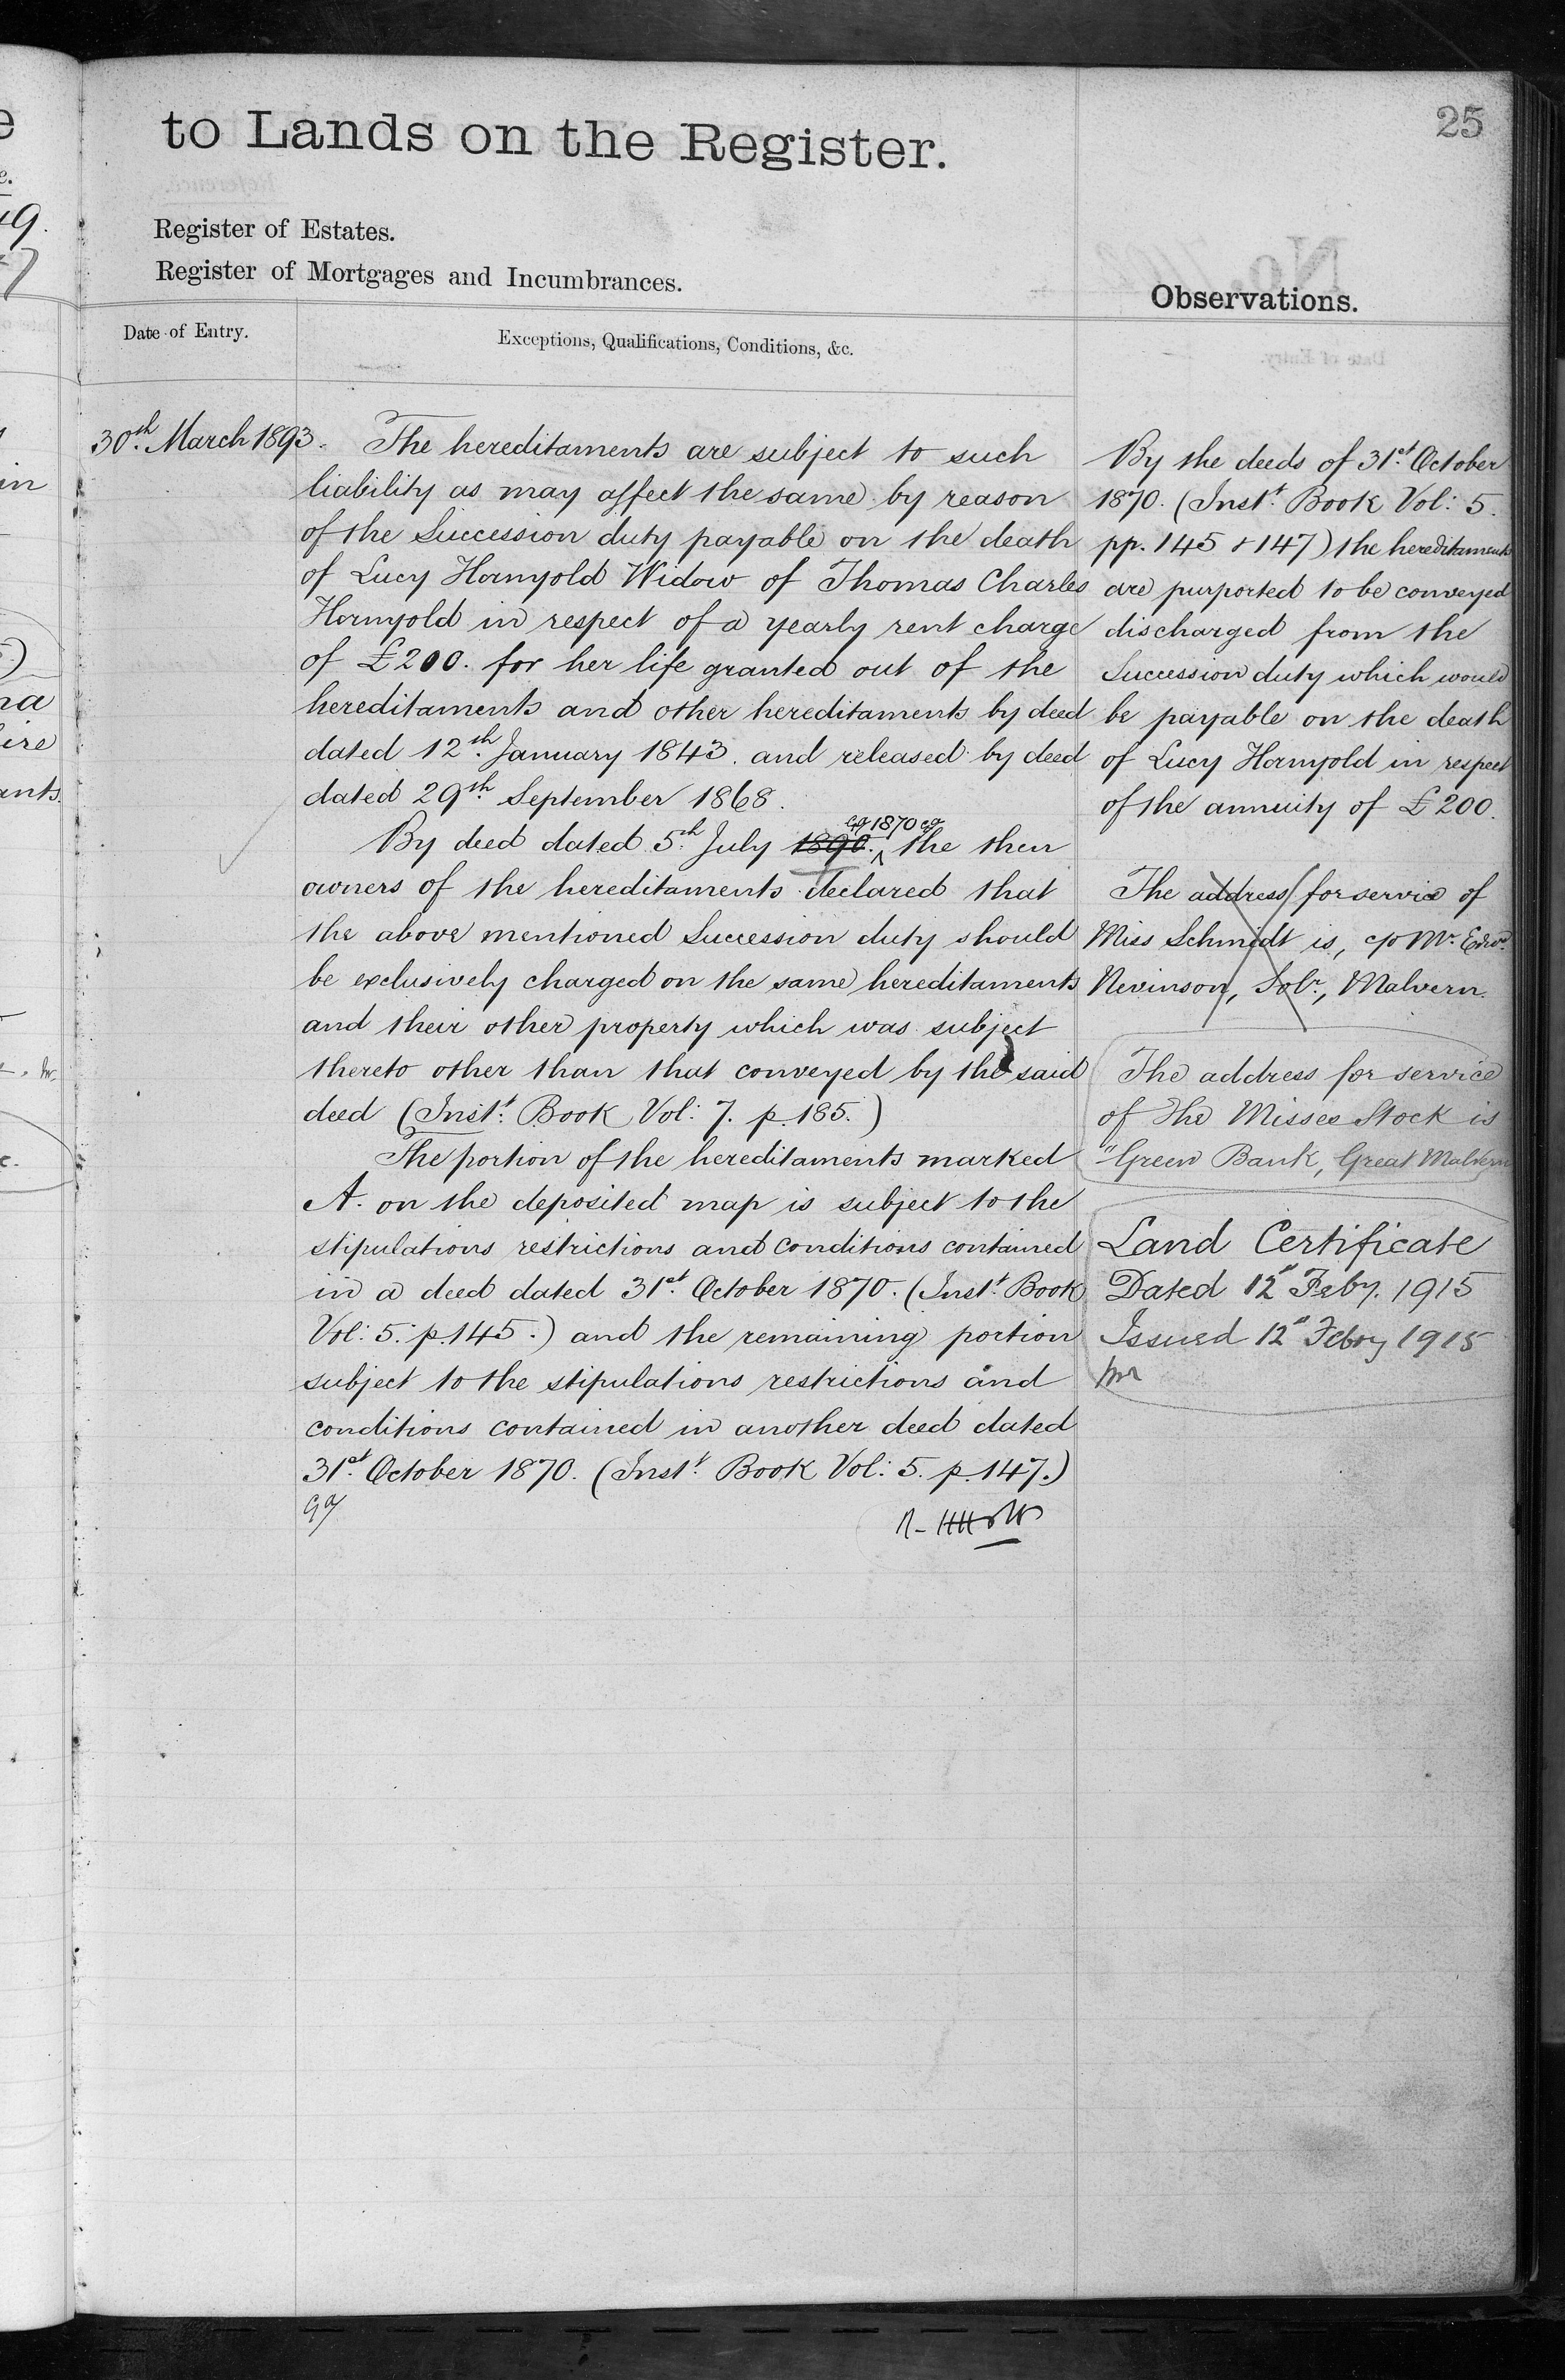 25
to Lands on the Register.
Register of Estates.
Register of Mortgages and Incumbrances.
Date of Entry.
Exceptions, Qualifications, Conditions, &c.
Observations.
30th March 1893.
The hereditaments are subject to such
liability as may affect the same by reason
of the Succession duty payable on the death
of Lucy Hornyold Widow of Thomas Charles
Hornyold in respect of a yearly rent charge
of £200. for her life granted out of the
hereditaments and other hereditaments by deed
dated 12th January 1843. and released by deed
dated 29th September 1868.
1870
By deed dated 5th July 1890. the then
owners of the hereditaments declared that
the above mentioned Succession duty should
be exclusively charged on the same hereditaments
and their other property which was subject
thereto other than that conveyed by the said
deed (Inst. Book Vol: 7. p. 185.)
The portion of the hereditaments marked
A. on the deposited map is subject to the
stipulations restrictions and conditions contained
in a deed dated 31st October 1870. (Inst. Book
Vol: 5. p. 145.) and the remaining portion
subject to the stipulations restrictions and
conditions contained in another deed dated
31st October 1870. (Inst. Book Vol: 5. p. 147.)
By the deeds of 31st October
1870. (Inst. Book Vol: 5.
pp. 145 & 147) the hereditaments
are purported to be conveyed
discharged from the
Succession duty which would
be payable on the death
of Lucy Hornyold in respect
of the annuity of £200.
The address for service of
Miss Schmidt is, c/o Mr. Edwd.
Nevinson, Solr., Malvern.
The address for service
of The Misses Stock is
"Green Bank, Great Malvern
Land Certificate
Dated 12" Feby. 1915
Issued 12" Febry 1915